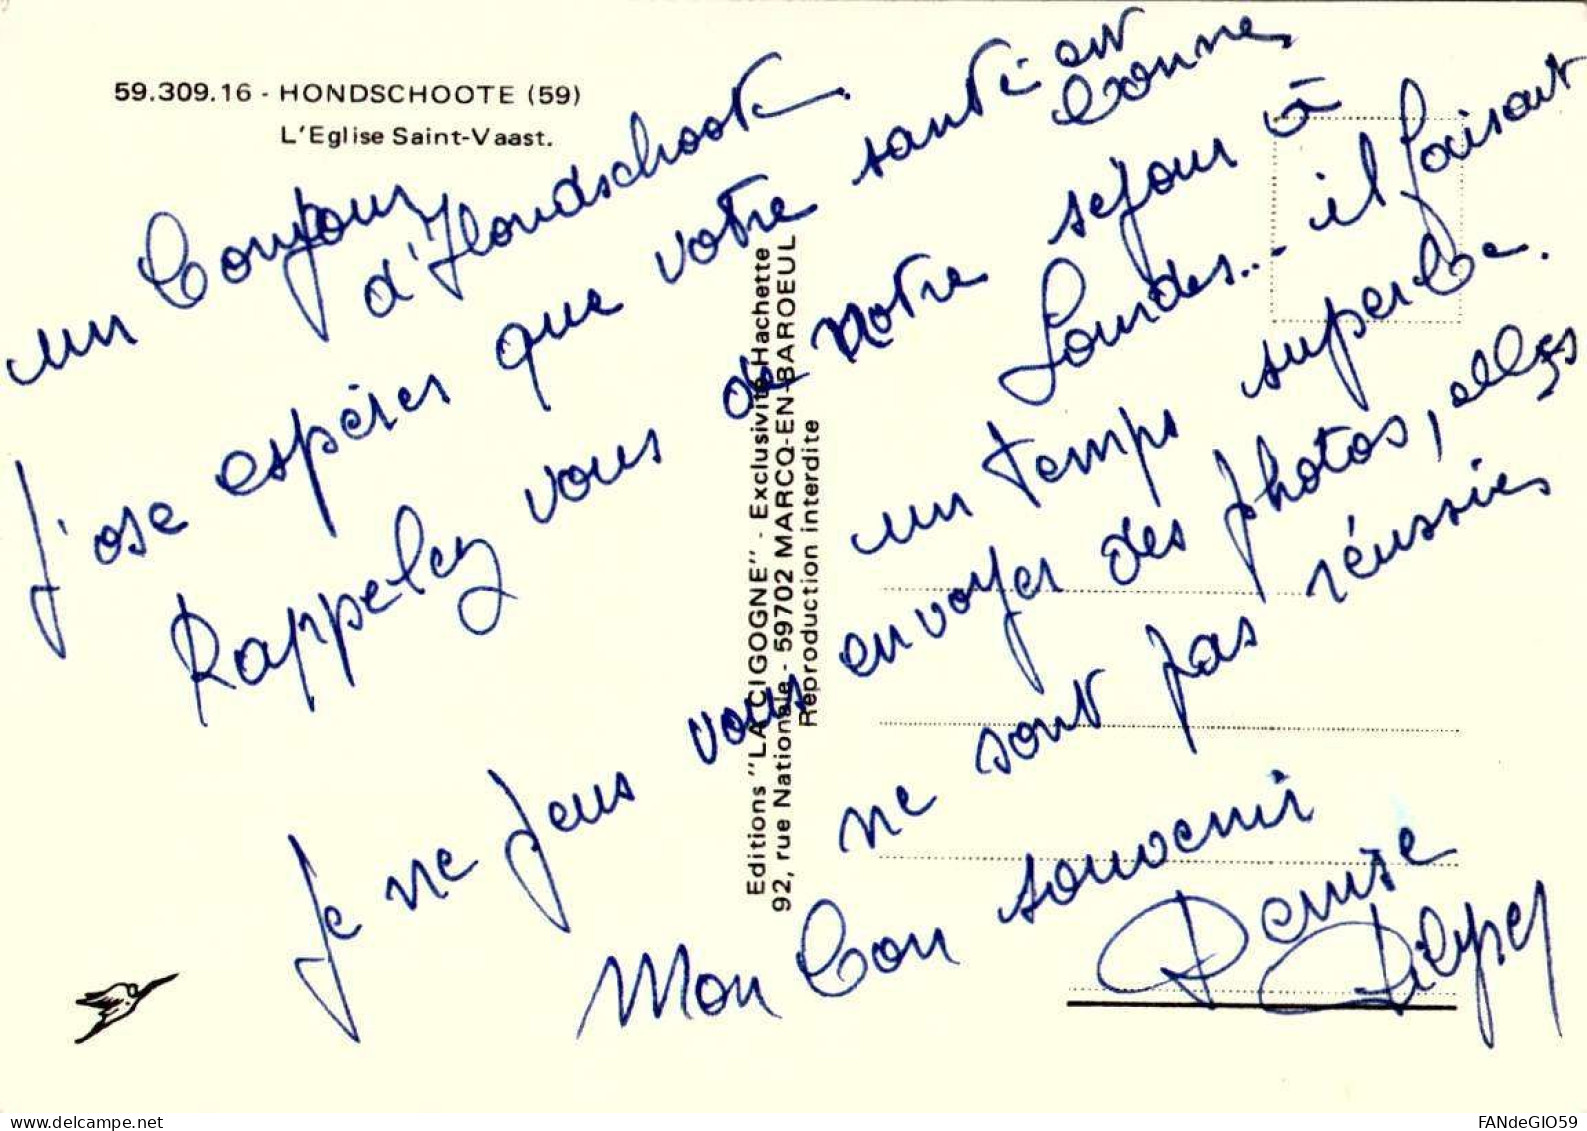 59.309.16 - HONDSCHOOTE (59)
L'Eglise Saint-Vaast.
un bonjour
d'Hondschoote.
j'ose espérer que votre santé est
bonne
Rappelez vous de notre séjour à
Lourdes... il faisait
un temps superbe.
Je ne peus vous envoyer des photos, elles
ne sont pas réussies
Mon bon souvenir
Denise
Editions "LA CIGOGNE" - Exclusivité Hachette
92, rue Nationale - 59702 MARCQ-EN-BAROEUL
Reproduction interdite
FANdeGIO59